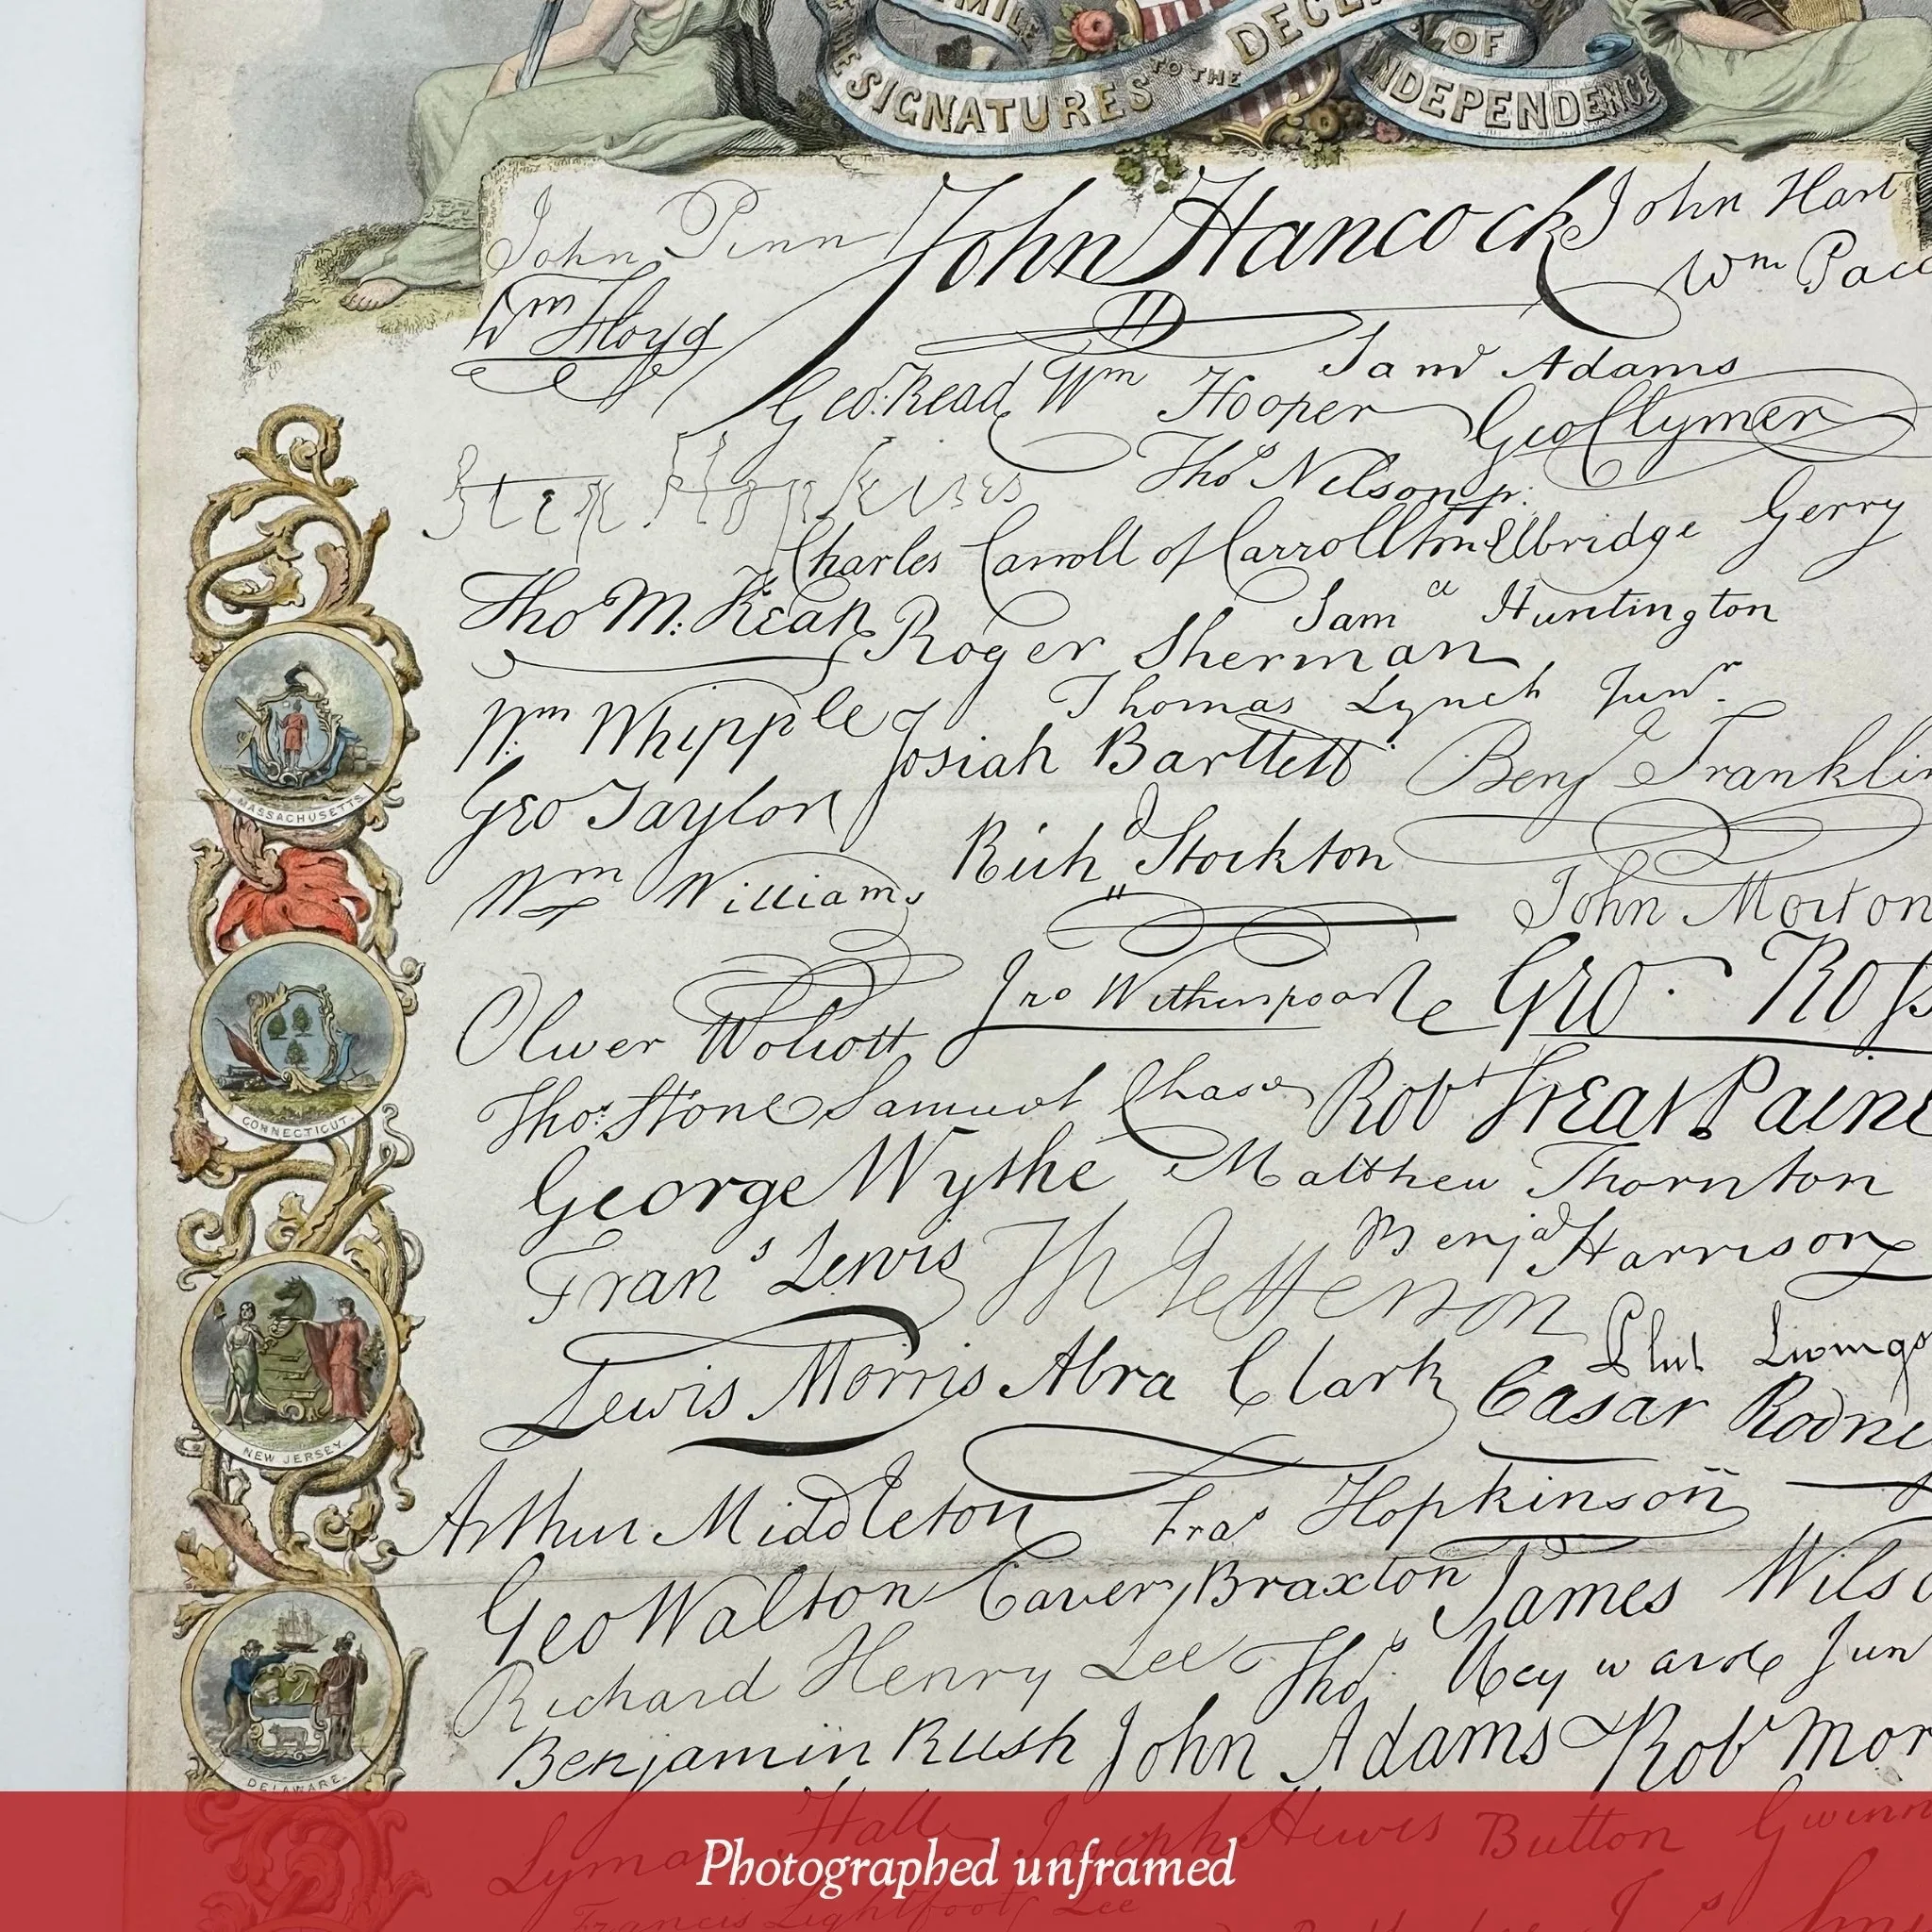 THE SIGNATURES TO THE DECL
OF INDEPENDENCE
John Penn John Hancock John Hart
Wm Floyd Wm Pac
Saml Adams
Geo: Read Wm Hooper Geo Clymer
Step Hopkins Thos Nelson jr.
Charles Carroll of Carrollton Elbridge Gerry
Tho M: Kean Saml Huntington
Roger Sherman
Wm Whipple Thomas Lynch Junr.
Josiah Bartlett Benj Franklin
Geo Taylor
Richd Stockton
Wm Williams John Morton
Jno Witherspoon Geo. Ross
Oliver Wolcott
Thos. Stone Samuel Chase Robt Treat Paine
George Wythe Matthew Thornton
Frans Lewis Th Jefferson Benja Harrison
Phil Livings
Lewis Morris Abra Clark Cæsar Rodne
Arthur Middleton Fras Hopkinson
Geo Walton Carter Braxton James Wilso
Richard Henry Lee Thos Heyward Jun
Benjamin Rush John Adams Robt Mor
Lyman Hall Joseph Hewes Button Gwinn
Francis Lightfoot Lee
MASSACHUSETTS
CONNECTICUT
NEW JERSEY
DELAWARE.
Photographed unframed